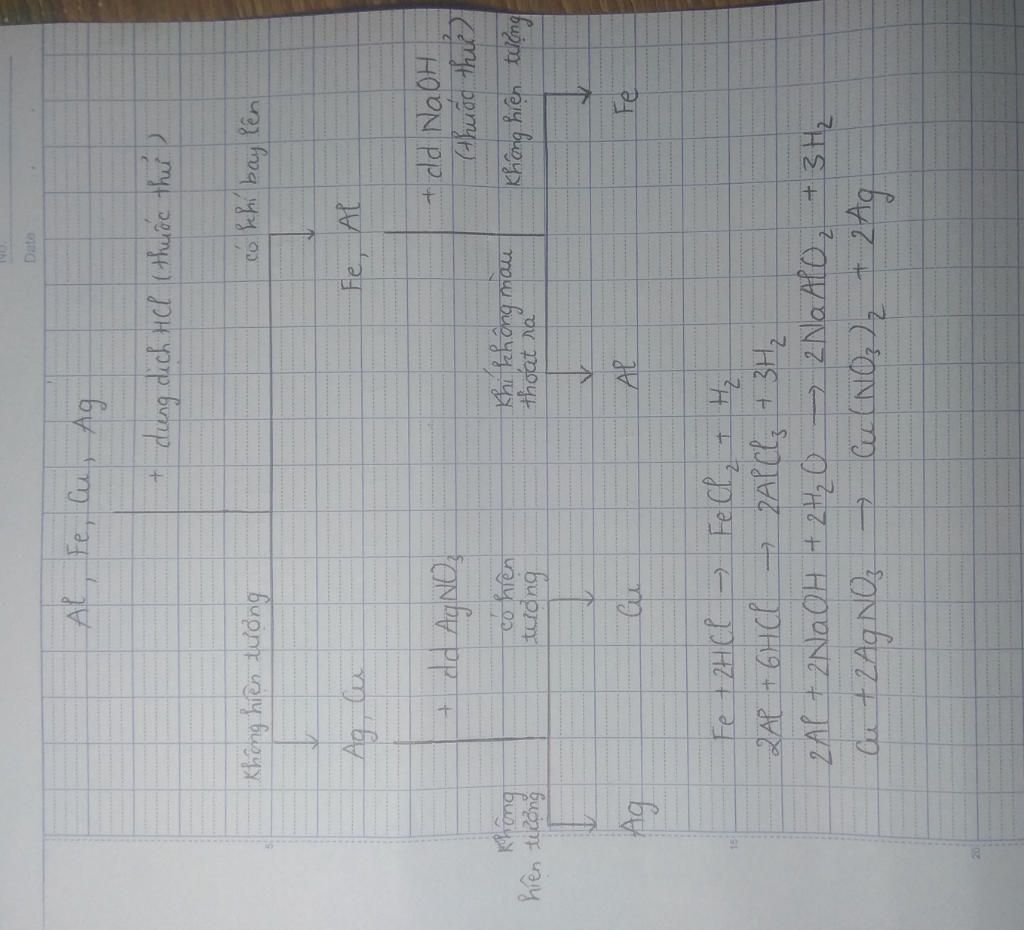 No.
Date
Al, Fe, Cu, Ag
+ dung dịch HCl (thuốc thử)
không hiện tượng
có khí bay lên
Ag, Cu
Fe, Al
+ dd AgNO3
+ dd NaOH
(thuốc thử)
không
hiện tượng
có hiện
tượng
khí không màu
thóat ra
không hiện tượng
Ag
Cu
Al
Fe
Fe + 2HCl → FeCl2 + H2
2Al + 6HCl → 2AlCl3 + 3H2
2Al + 2NaOH + 2H2O → 2NaAlO2 + 3H2
Cu + 2AgNO3 → Cu(NO3)2 + 2Ag
5
15
20